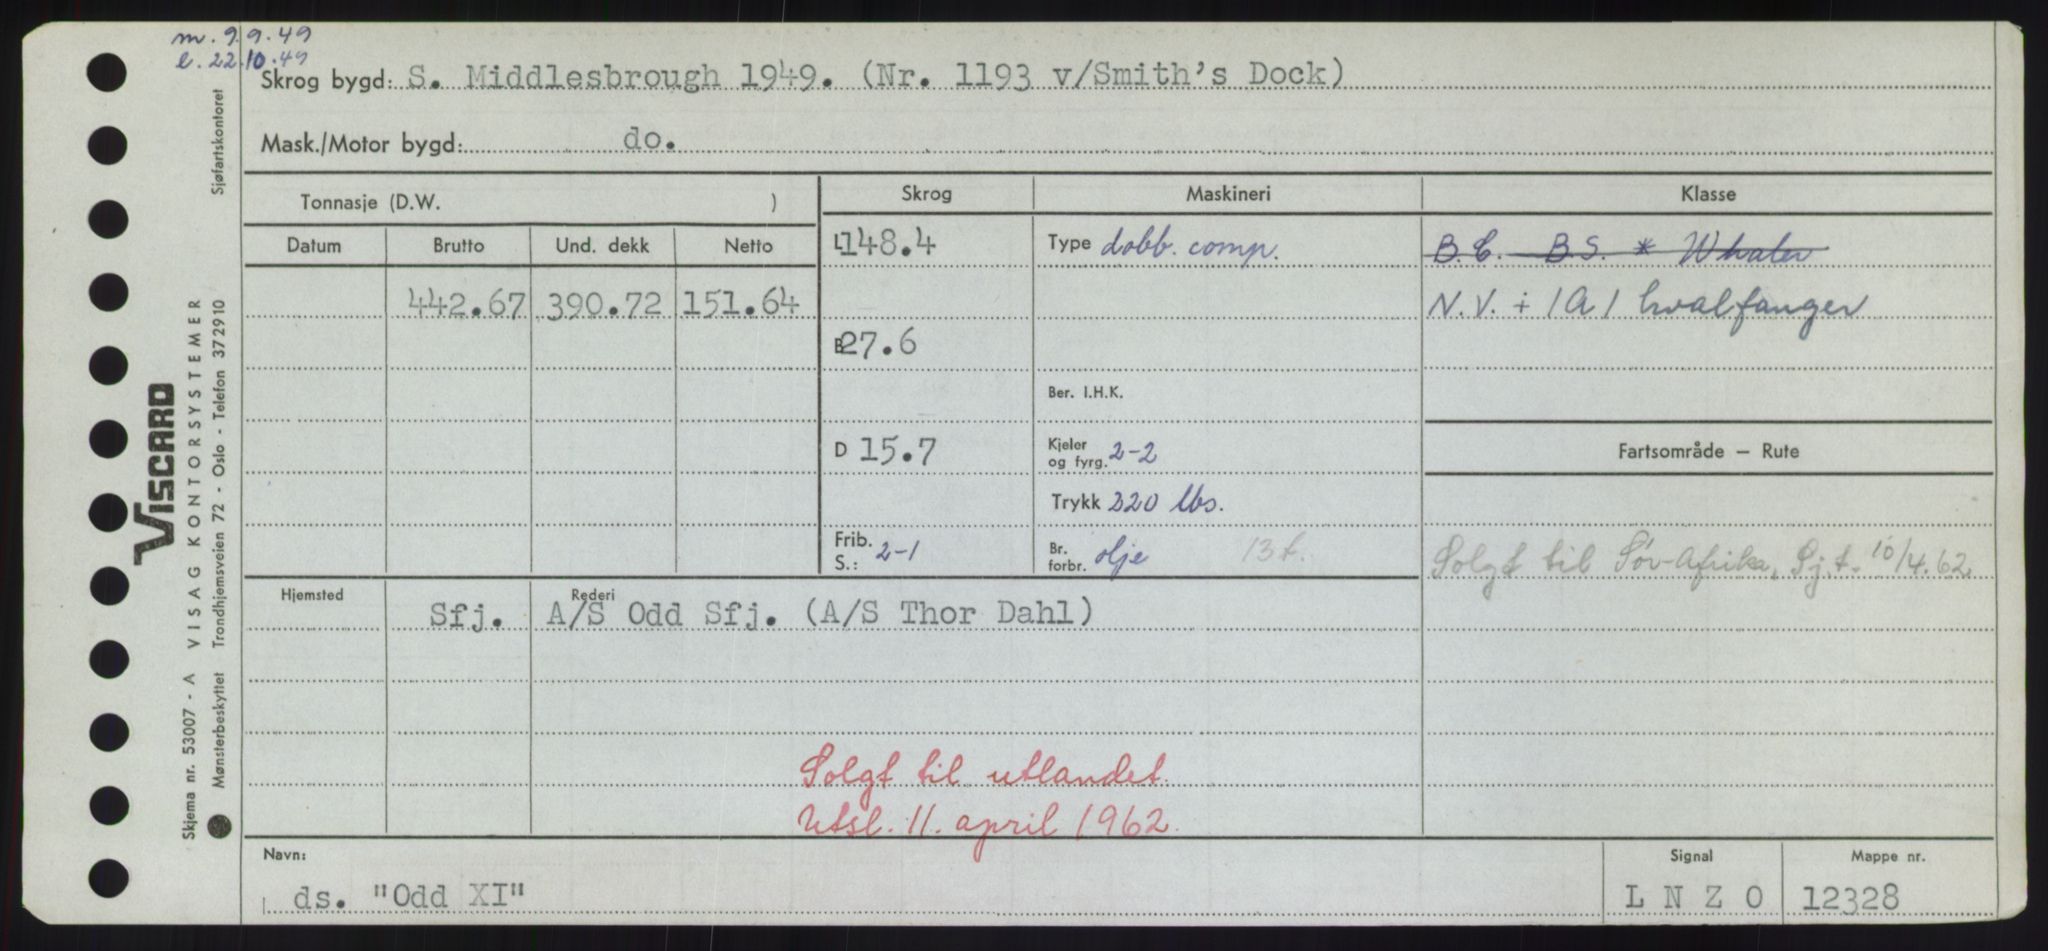 m. 9.9.49
l. 22.10.49
Skrog bygd: S. Middlesbrough 1949. (Nr. 1193 v/Smith's Dock)
Mask./Motor bygd: do.
Tonnasje (D.W. )
Skrog Maskineri Klasse
Datum Brutto Und. dekk Netto
L 148.4 Type dobb. comp. B.C. B.S. * Whaler
442.67 390.72 151.64 N.V. + 1A1 hvalfanger
B 27.6
Ber. I.H.K.
D 15.7 Kjeler og fyrg. 2-2 Fartsområde — Rute
Trykk 220 lbs.
Frib. S.: 2-1 Br. forbr. olje 13 t. Solgt til Sør-Afrika, Sj.t. 10/4.62
Hjemsted Rederi
Sfj. A/S Odd Sfj. (A/S Thor Dahl)
Solgt til utlandet.
Utsl. 11. april 1962.
Navn: Signal Mappe nr.
ds. "Odd XI" L N Z O 12328
Sjøfartskontoret
VISCARD
VISAG KONTORSYSTEMER
Trondhjemsveien 72 - Oslo - Telefon 372910
Skjema nr. 53007 - A
Mønsterbeskyttet